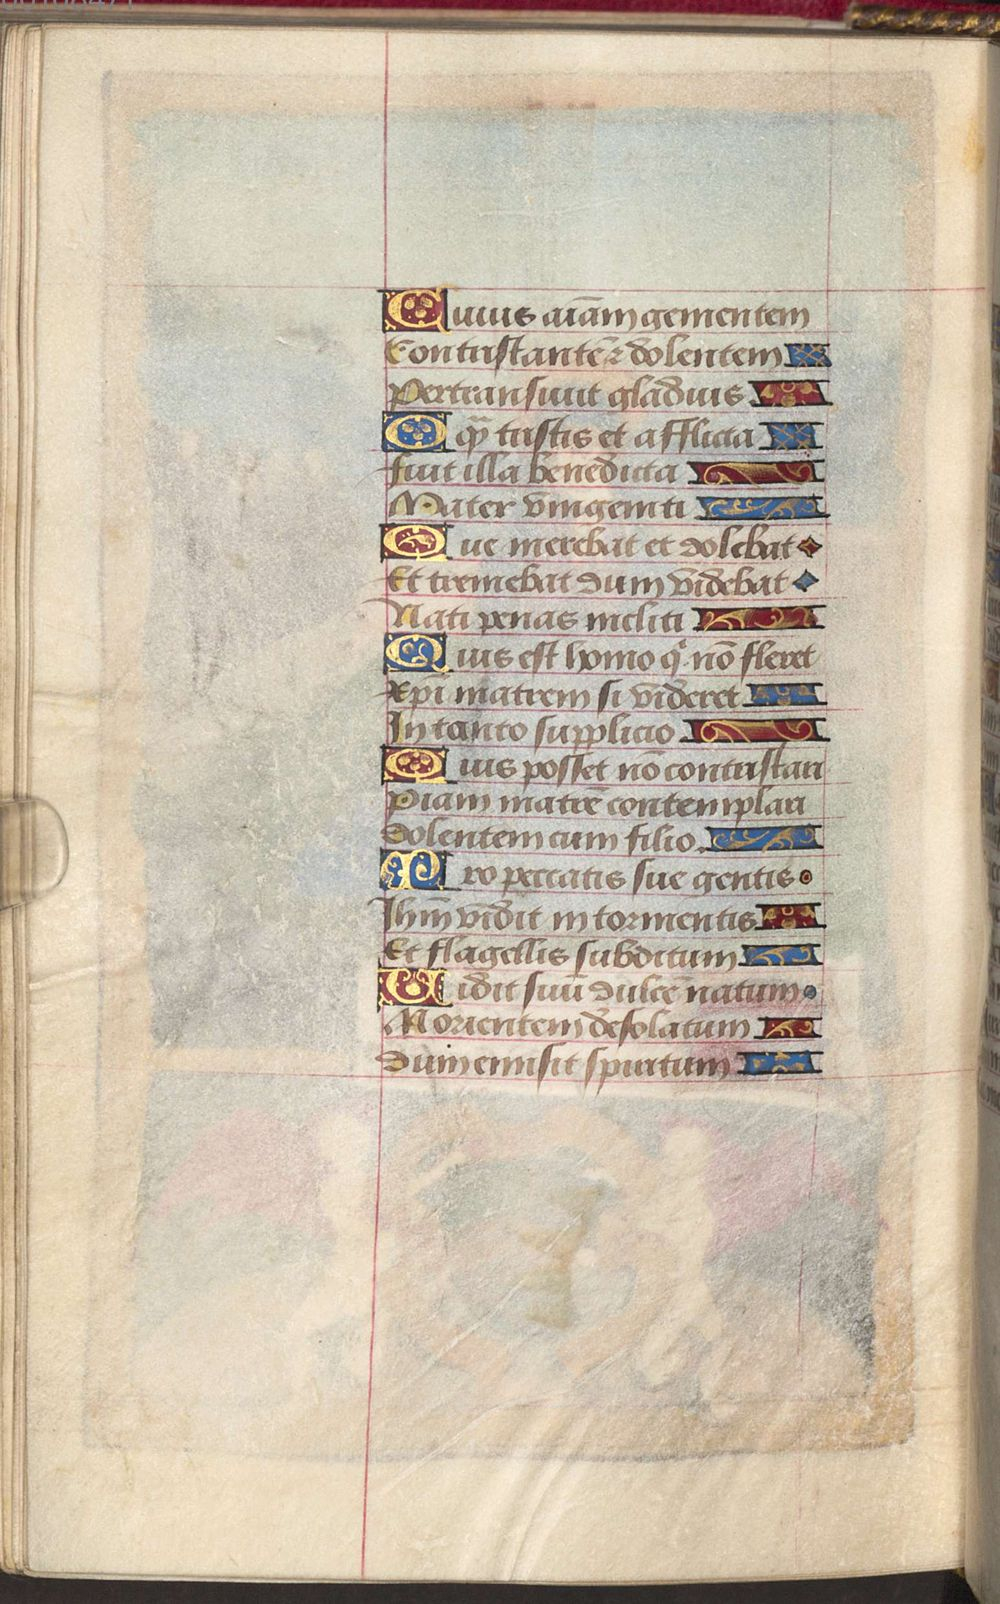 Cuius aīam gementem
Contristantē ꝛ dolentem
Pertransiuit gladius
O q̄ tristis et afflicta
fuit illa benedicta
Mater vnigeniti
Que merebat et dolebat
Et tremebat dum videbat
Nati penas incliti
Quis est homo qͥ nō fleret
Xp̄i matrem si videret
In tanto supplicio
Quis posset nō contristari
Piam matrē contemplari
dolentem cum filio.
Pro peccatis sue gentis
Ihm̄ vidit in tormentis
Et flagellis subditum
Vidit suū dulcē natum
Morientem desolatum
dum emisit spiritum